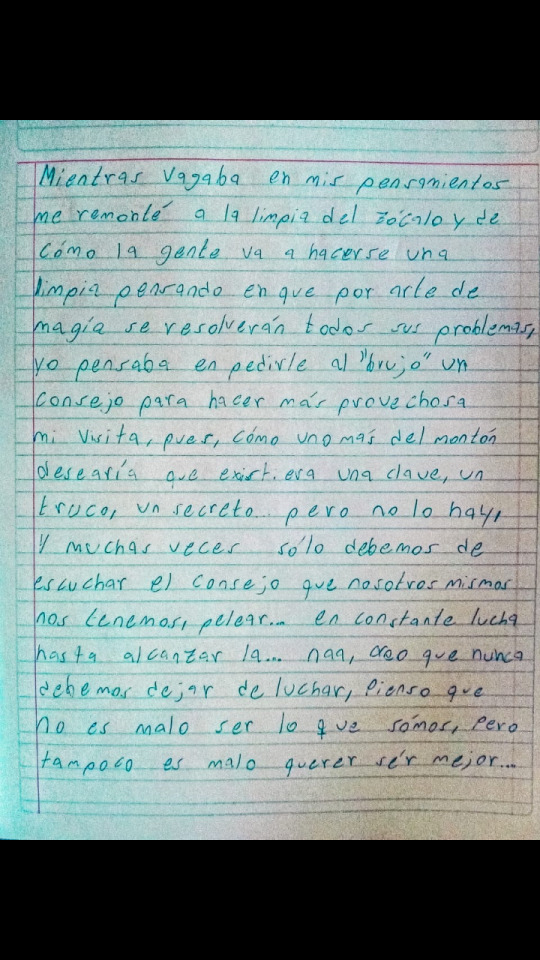 Mientras vagaba en mis pensamientos
me remonté a la limpia del zócalo y de
cómo la gente va a hacerse una
limpia pensando en que por arte de
magía se resolverán todos sus problemas,
yo pensaba en pedirle al "brujo" un
consejo para hacer más provechosa
mi visita, pues, cómo uno más del montón
desearía que existiera una clave, un
truco, un secreto... pero no lo hay,
y muchas veces sólo debemos de
escuchar el consejo que nosotros mismos
nos tenemos, pelear... en constante lucha
hasta alcanzar la... naa, creo que nunca
debemos dejar de luchar, Pienso que
no es malo ser lo que sómos, pero
tampoco es malo querer sér mejor...